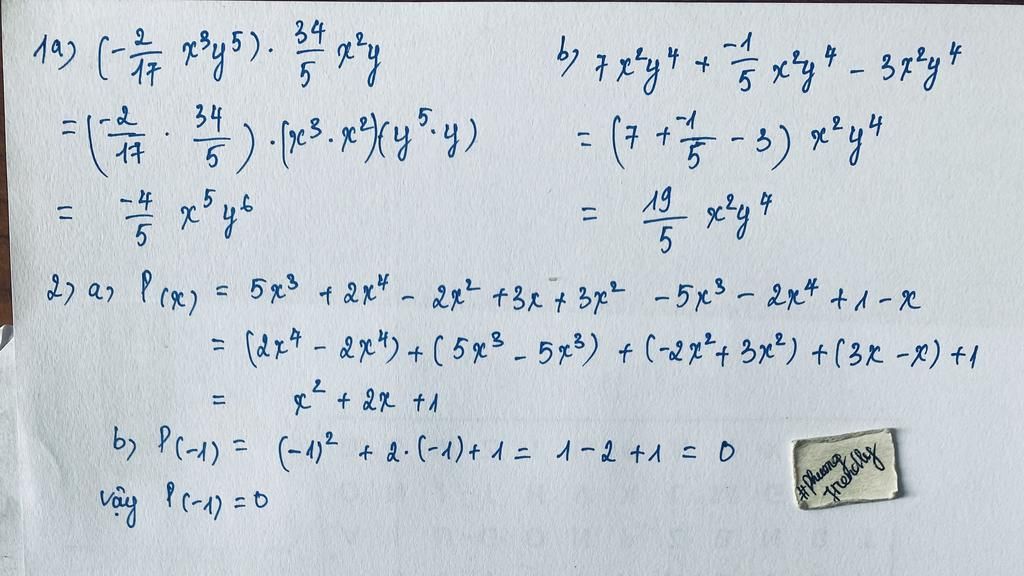 1a) (-2/17 x³y⁵) · 34/5 x²y
= (-2/17 · 34/5) · (x³ · x²)(y⁵ · y)
= -4/5 x⁵y⁶
b) 7x²y⁴ + -1/5 x²y⁴ - 3x²y⁴
= (7 + -1/5 - 3) x²y⁴
= 19/5 x²y⁴
2) a) P(x) = 5x³ + 2x⁴ - 2x² + 3x + 3x² - 5x³ - 2x⁴ + 1 - x
= (2x⁴ - 2x⁴) + (5x³ - 5x³) + (-2x² + 3x²) + (3x - x) + 1
= x² + 2x + 1
b) P(-1) = (-1)² + 2·(-1) + 1 = 1 - 2 + 1 = 0
vậy P(-1) = 0
#Phuong
friendly